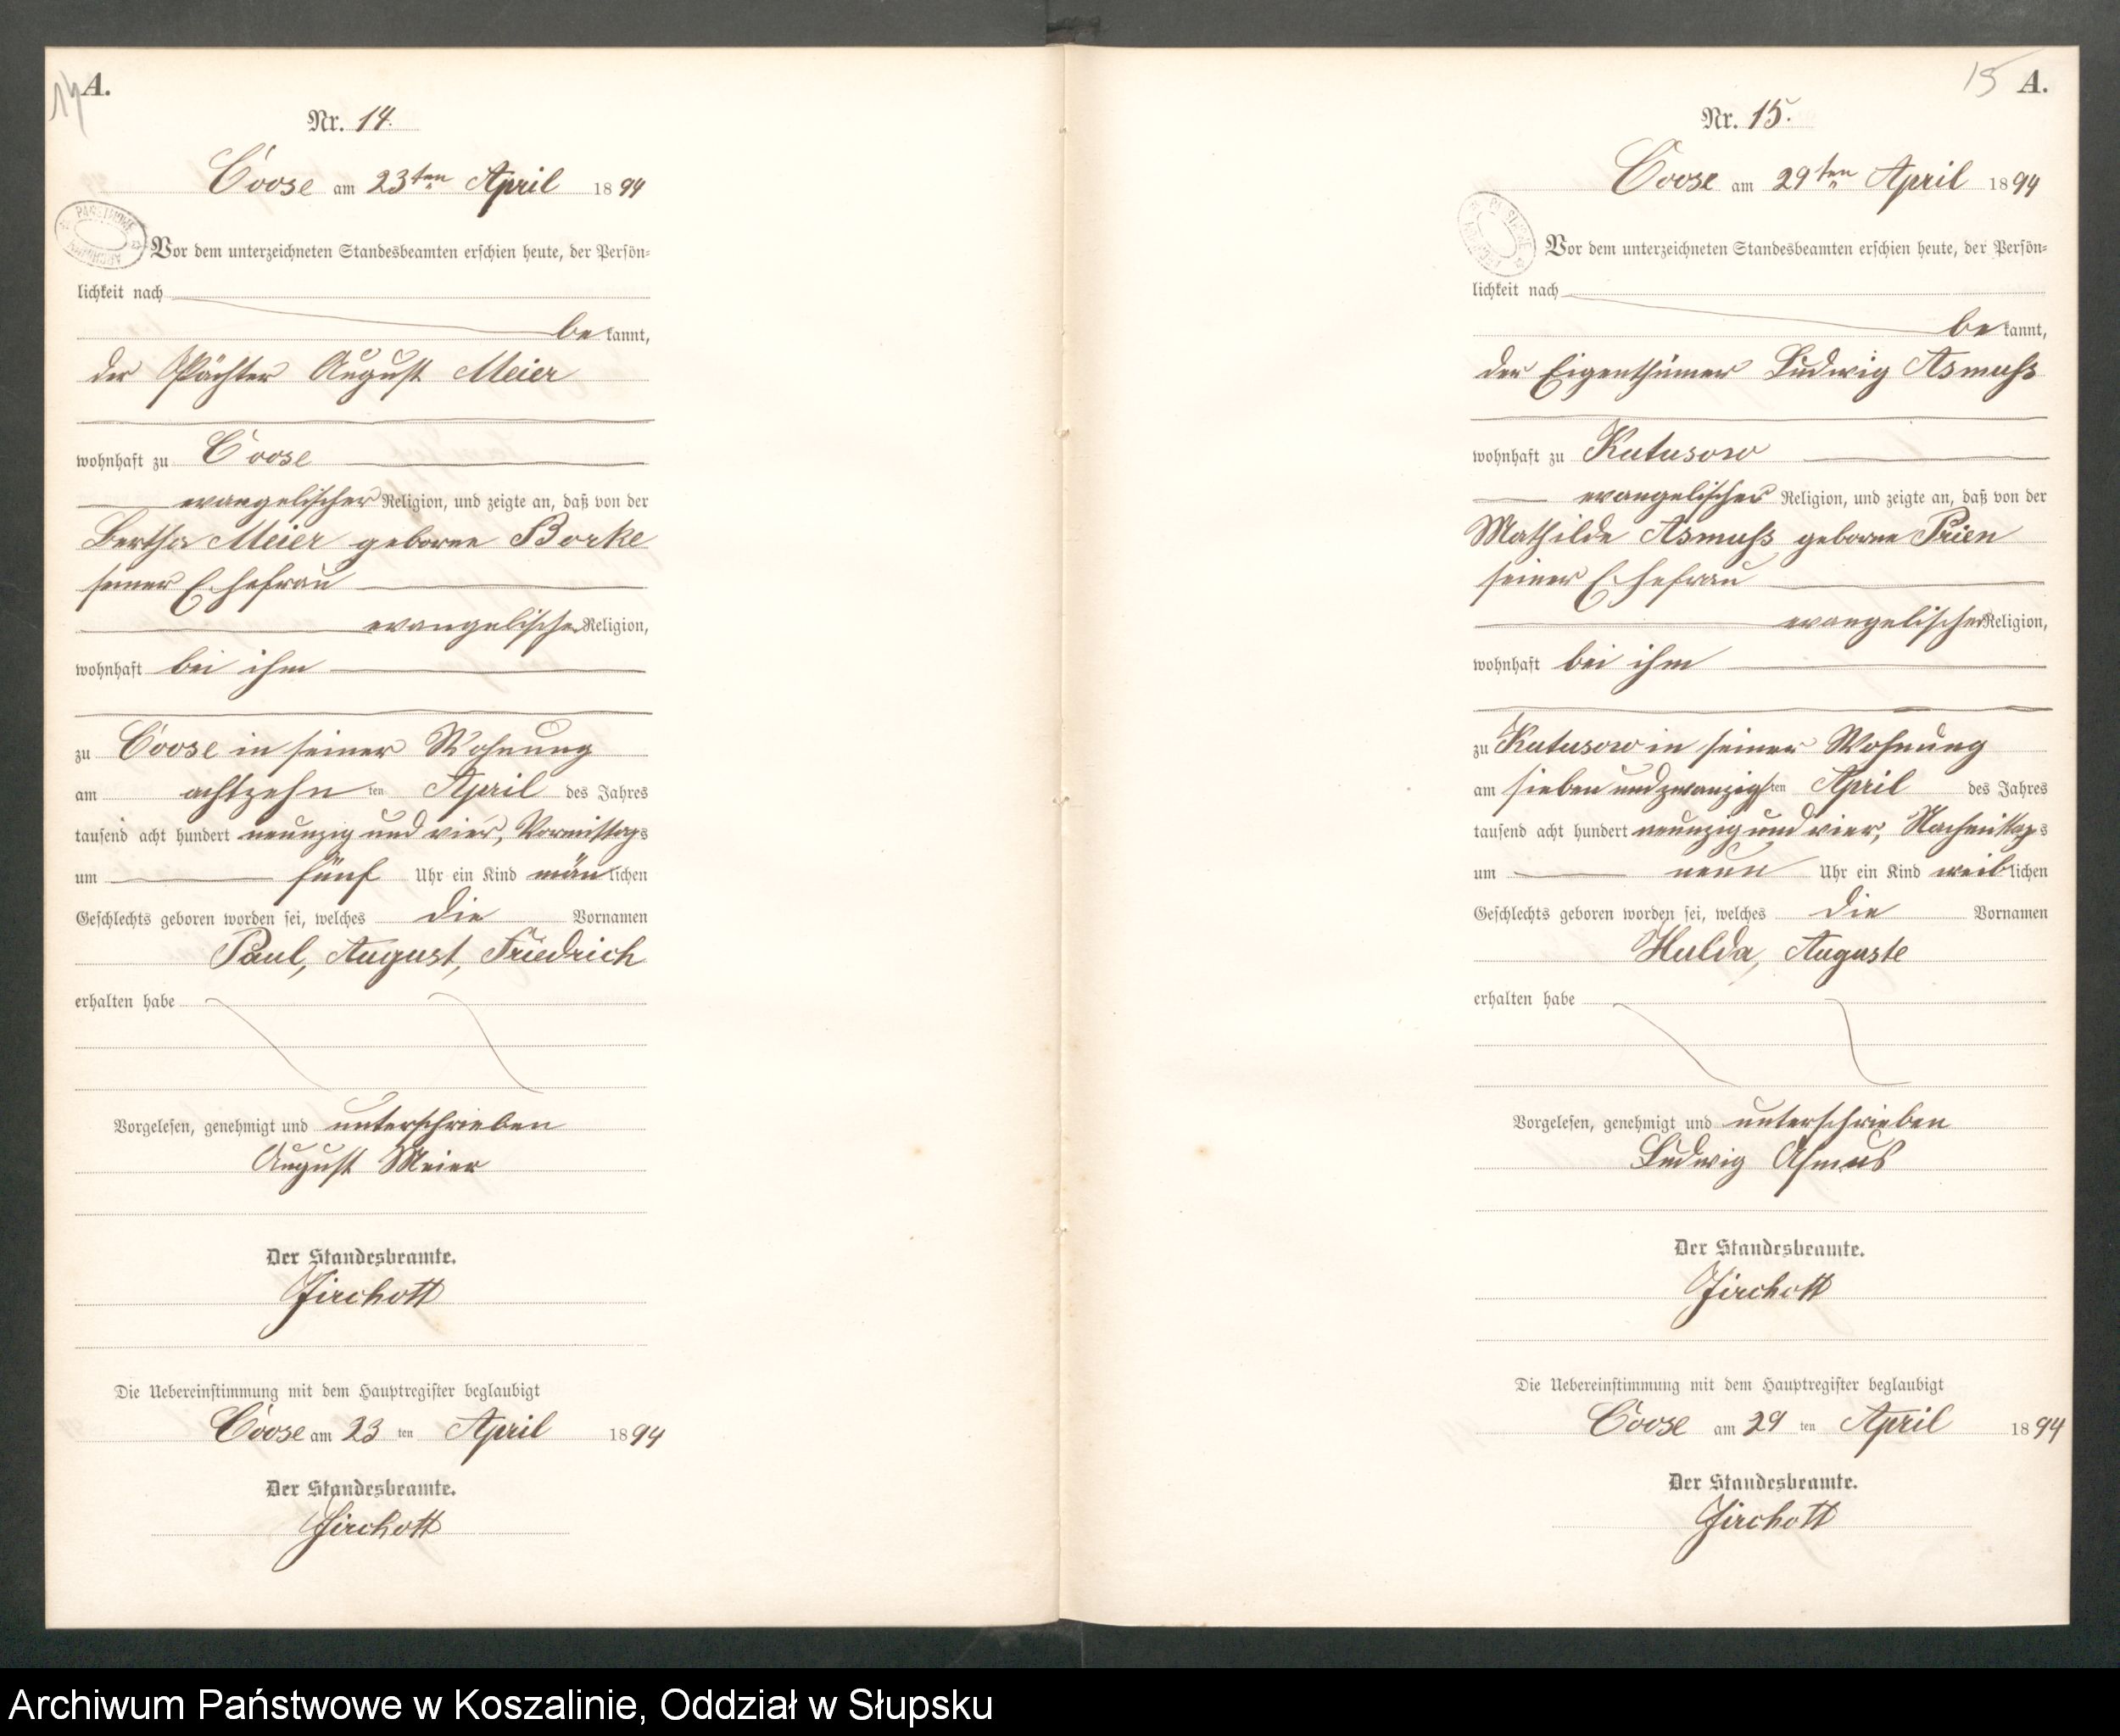 14 A.
Nr. 14.
Coose am 23ten April 1894
PAŃSTWOWE ARCHIWUM
Vor dem unterzeichneten Standesbeamten erschien heute, der Persön-
lichkeit nach
bekannt,
der Pächter August Meier
wohnhaft zu Coose
evangelischer Religion, und zeigte an, daß von der
Bertha Meier geborne Borke
seiner Ehefrau
evangelischer Religion,
wohnhaft bei ihm
zu Coose in seiner Wohnung
am achtzehnten April des Jahres
tausend acht hundert neunzig und vier, Vormittags
um fünf Uhr ein Kind mänlichen
Geschlechts geboren worden sei, welches die Vornamen
Paul, August, Friedrich
erhalten habe
Vorgelesen, genehmigt und unterschrieben
August Meier
Der Standesbeamte.
Zirchott
Die Uebereinstimmung mit dem Hauptregister beglaubigt
Coose am 23ten April 1894
Der Standesbeamte.
Zirchott
15 A.
Nr. 15.
Coose am 29ten April 1894
Vor dem unterzeichneten Standesbeamten erschien heute, der Persön-
lichkeit nach
bekannt,
der Eigenthümer Ludwig Asmuß
wohnhaft zu Kutusow
evangelischer Religion, und zeigte an, daß von der
Mathilde Asmuß geborne Prien
seiner Ehefrau
evangelischer Religion,
wohnhaft bei ihm
zu Kutusow in seiner Wohnung
am sieben und zwanzigsten April des Jahres
tausend acht hundert neunzig und vier, Nachmittags
um neun Uhr ein Kind weiblichen
Geschlechts geboren worden sei, welches die Vornamen
Hulda, Auguste
erhalten habe
Vorgelesen, genehmigt und unterschrieben
Ludwig Asmus
Der Standesbeamte.
Zirchott
Die Uebereinstimmung mit dem Hauptregister beglaubigt
Coose am 29ten April 1894
Der Standesbeamte.
Zirchott
Archiwum Państwowe w Koszalinie, Oddział w Słupsku